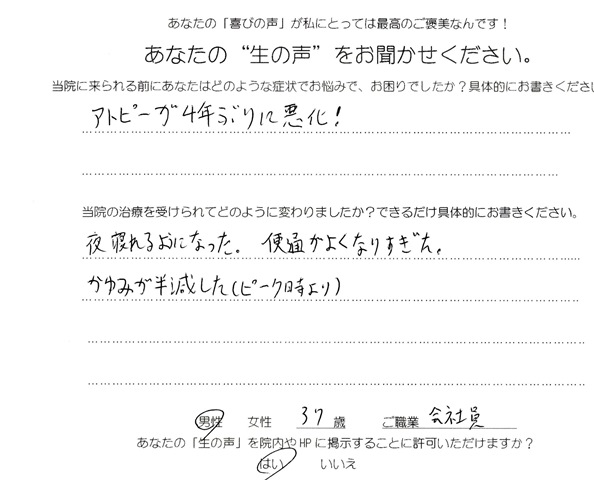 あなたの「喜びの声」が私にとっては最高のご褒美なんです！
あなたの“生の声”をお聞かせください。
当院に来られる前にあなたはどのような症状でお悩みで、お困りでしたか？具体的にお書きください
アトピーが4年ぶりに悪化！
当院の治療を受けられてどのように変わりましたか？できるだけ具体的にお書きください。
夜寝れるようになった。便通がよくなりすぎた。
かゆみが半減した(ピーク時より)
男性 女性 37 歳 ご職業 会社員
あなたの「生の声」を院内やHPに掲示することに許可いただけますか？
はい いいえ